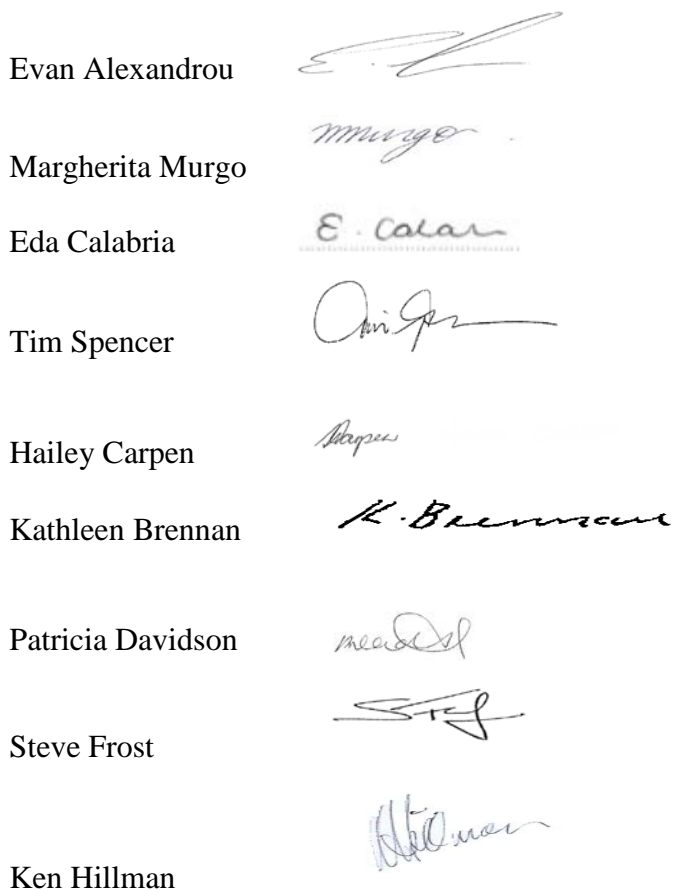 Evan Alexandrou
Margherita Murgo mmurgo
Eda Calabria E. Calab
Tim Spencer
Hailey Carpen
Kathleen Brennan K. Brennan
Patricia Davidson
Steve Frost
Ken Hillman Hillman